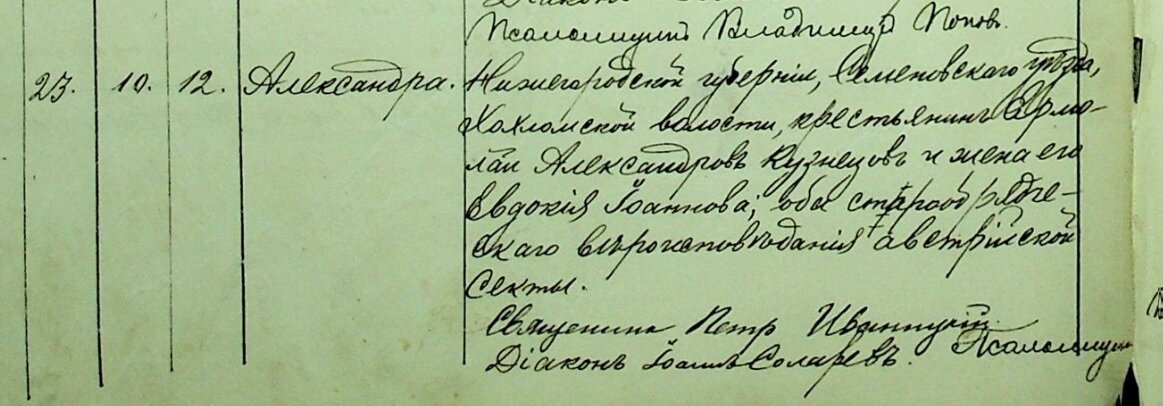 Діаконъ
Псаломщикъ Владиміръ Поповъ.
23. 10. 12. Александра. Нижегородской губерніи, Семеновскаго уѣзда,
Хохломской волости, крестьянинъ Ермо-
лай Александровъ Кузнецовъ и жена его
Евдокія Іоаннова; оба старообрядче-
скаго вѣроисповѣданія австрійской
секты.
Священникъ Петръ
Діаконъ Іоаннъ Соларевъ. Псаломщикъ